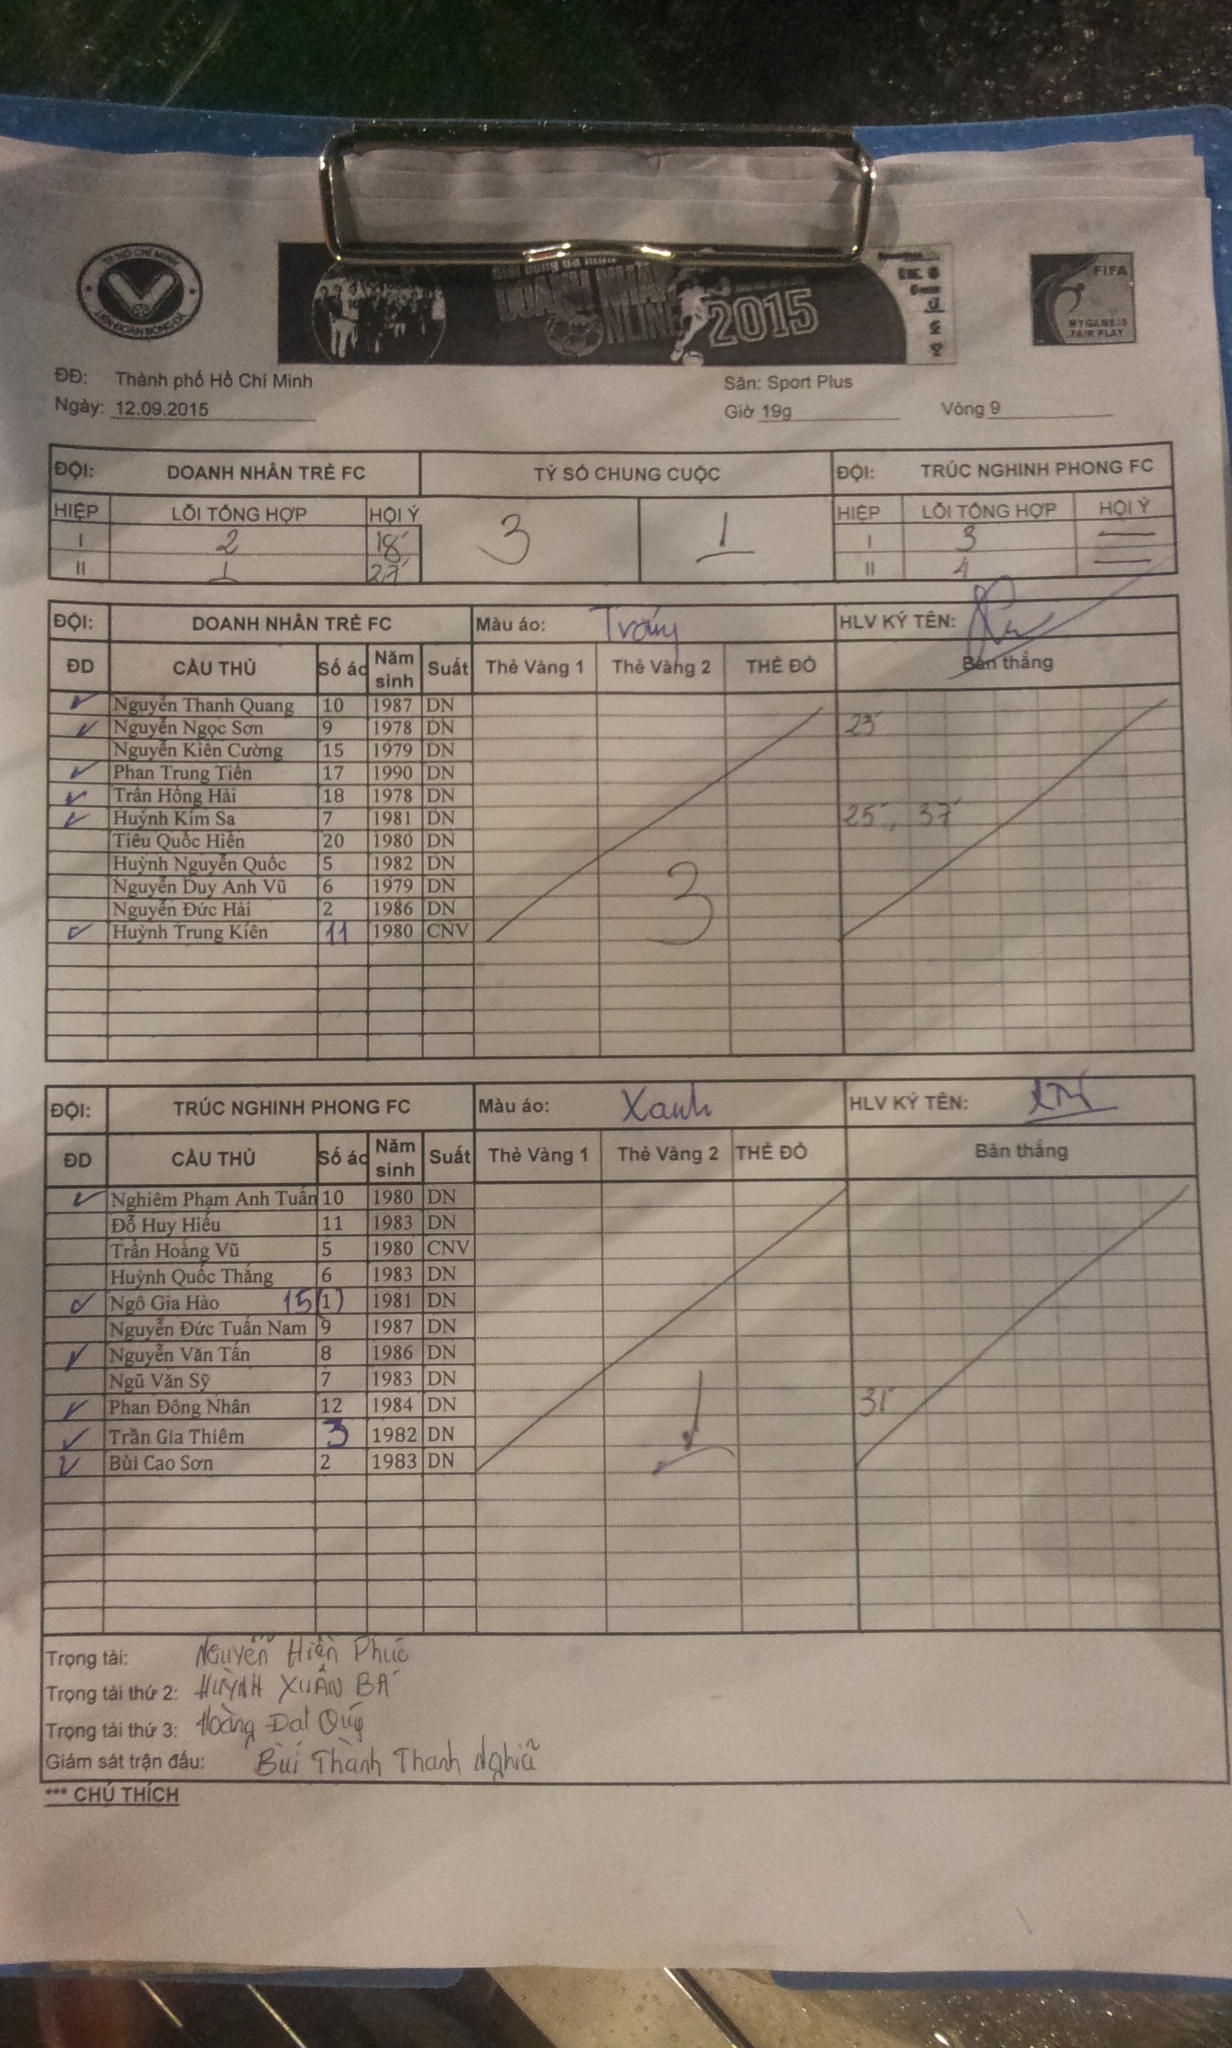 TP HỒ CHÍ MINH
LIÊN ĐOÀN BÓNG ĐÁ
DOANH NHÂN
ONLINE 2015
FIFA
MY GAME IS
FAIR PLAY
ĐĐ: Thành phố Hồ Chí Minh Sân: Sport Plus
Ngày: 12.09.2015 Giờ 19g Vòng 9
ĐỘI: DOANH NHÂN TRẺ FC TỶ SỐ CHUNG CUỘC ĐỘI: TRÚC NGHINH PHONG FC
HIỆP LỖI TỔNG HỢP HỘI Ý 3 1 HIỆP LỖI TỔNG HỢP HỘI Ý
I 2 18' I 3 —
II 1 27' II 4 —
ĐỘI: DOANH NHÂN TRẺ FC Màu áo: Trắng HLV KÝ TÊN:
ĐD CẦU THỦ Số áo Năm sinh Suất Thẻ Vàng 1 Thẻ Vàng 2 THẺ ĐỎ Bàn thắng
✓ Nguyễn Thanh Quang 10 1987 DN
✓ Nguyễn Ngọc Sơn 9 1978 DN 23'
Nguyễn Kiên Cường 15 1979 DN
✓ Phan Trung Tiến 17 1990 DN
✓ Trần Hồng Hải 18 1978 DN
✓ Huỳnh Kim Sa 7 1981 DN 25', 37'
Tiêu Quốc Hiền 20 1980 DN
Huỳnh Nguyễn Quốc 5 1982 DN
Nguyễn Duy Anh Vũ 6 1979 DN 3
Nguyễn Đức Hải 2 1986 DN
✓ Huỳnh Trung Kiên 11 1980 CNV
ĐỘI: TRÚC NGHINH PHONG FC Màu áo: Xanh HLV KÝ TÊN:
ĐD CẦU THỦ Số áo Năm sinh Suất Thẻ Vàng 1 Thẻ Vàng 2 THẺ ĐỎ Bàn thắng
✓ Nghiêm Phạm Anh Tuấn 10 1980 DN
Đỗ Huy Hiếu 11 1983 DN
Trần Hoàng Vũ 5 1980 CNV
Huỳnh Quốc Thắng 6 1983 DN
✓ Ngô Gia Hào 15 (1) 1981 DN
Nguyễn Đức Tuấn Nam 9 1987 DN
✓ Nguyễn Văn Tấn 8 1986 DN
Ngũ Văn Sỹ 7 1983 DN
✓ Phan Đông Nhân 12 1984 DN 1 31'
✓ Trần Gia Thiêm 3 1982 DN
✓ Bùi Cao Sơn 2 1983 DN
Trọng tài: Nguyễn Hiền Phúc
Trọng tài thứ 2: HUỲNH XUÂN BÁ
Trọng tài thứ 3: Hoàng Đạt Quý
Giám sát trận đấu: Bùi Thành Thanh Nghĩa
*** CHÚ THÍCH